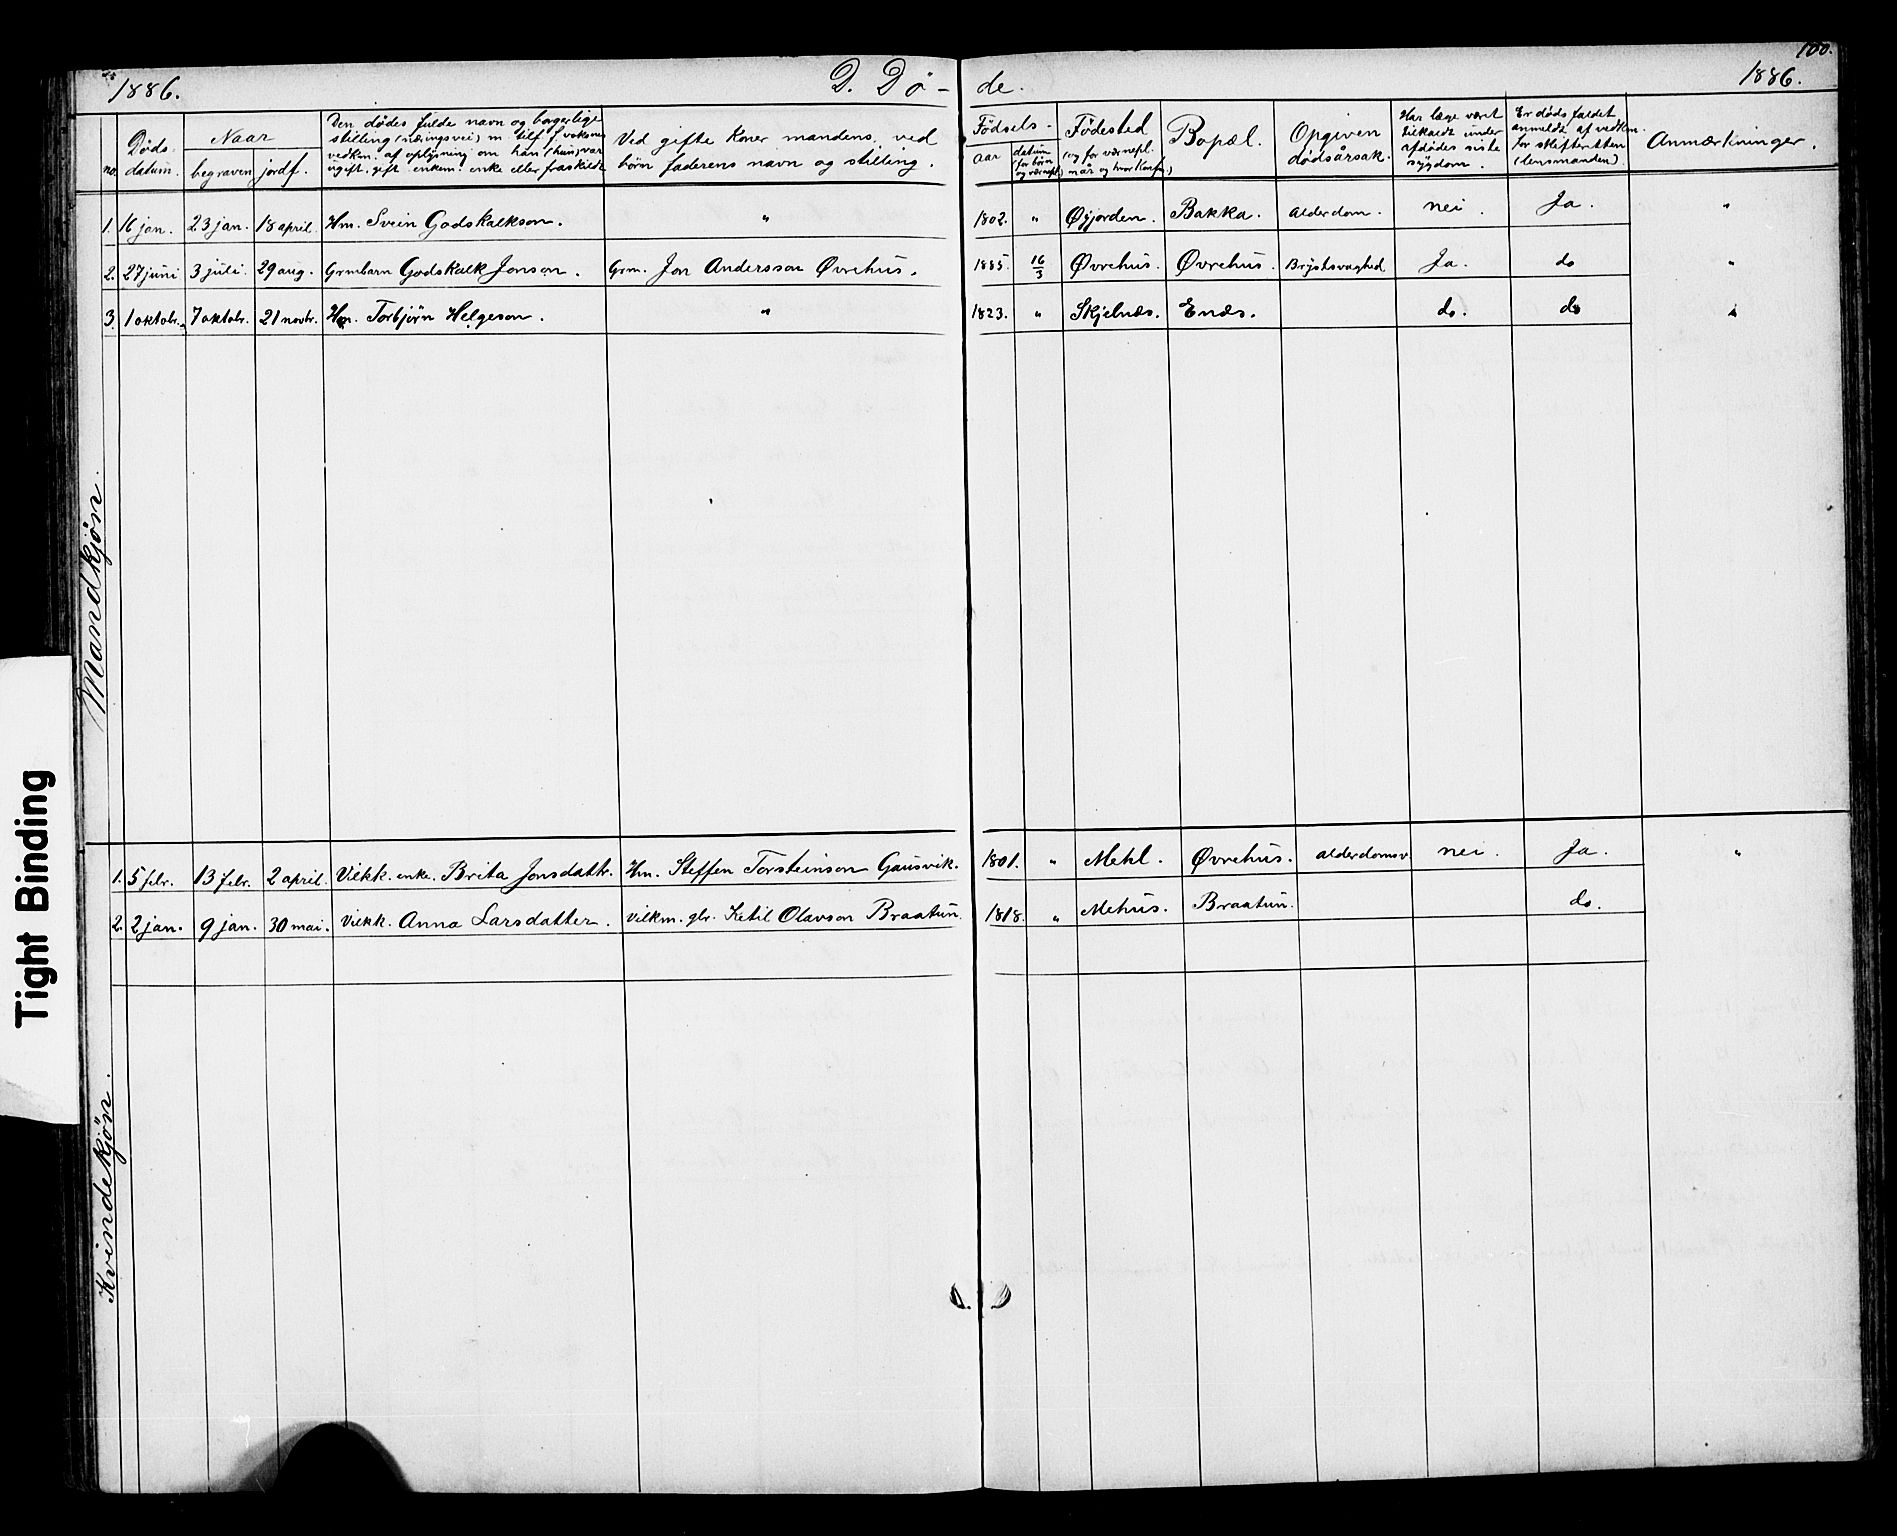 100.
1886. D. Dø- de. 1886.
no. Døds- datum. Naar begraven jordf. Den dødes fulde navn og borgerlige stilling (næringsvei) m tilf. f. voksnes vedkm. af oplysning om han (hun) var ugift, gift, enkem. enke eller fraskildt Ved gifte koner mandens, ved børn faderens navn og stilling. Fødsels- aar datum (for børn og værnepl.) Fødested (og for værnepl. når og hvor konf.) Bopæl. Opgiven dødsårsak. Har læge vært tilkaldt under afdødes siste sygdom. Er dødsfaldet anmeldt af vedkm. for skifteretten (lensmanden) Anmærkninger.
Mandkjøn.
1. 16 jan. 23 jan. 18 april. Hm. Svein Godskalkson. " 1802. " Øyjorden. Bakka. Alderdom. nei. Ja. "
2. 27 juni 3 juli. 29 aug. Grmbarn Godskalk Jonson. Grm. Jon Andersson Øvrehus. 1885. 16/3 Øvrehus. Øvrehus. Brystsvaghed Ja. do "
3. 1 oktobr. 7 oktobr. 21 novbr. Hm. Torbjørn Helgeson. " 1823. " Skjelnæs. Enæs. do. do "
Kvindekjøn.
1. 5 febr. 13 febr. 2 april. Vilkk. enke. Brita Jonsdattr. Hm. Steffen Torsteinson Gausvik. 1801. " Mehl. Øvrehus. Alderdomsv. nei. Ja. "
2. 2 jan. 9 jan. 30 mai. Vilkk. Anna Larsdatter. Vilkm. gbr. Ketil Olavson Braatun. 1818. " Mehus. Braatun. do.
Tight Binding